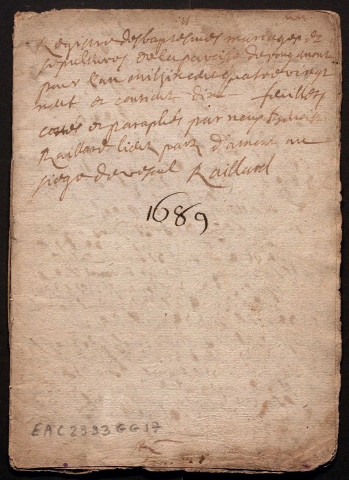 Registre des baptesmes mariages et
sepultures de la paroisse de
pour l'an mil six cent quatre vingt
neuf et contient dix feuillets
cottés et paraphés par nous
Raillard lieut part d'amont au
siege de vesoul Raillard
1689
EAC2993GG17